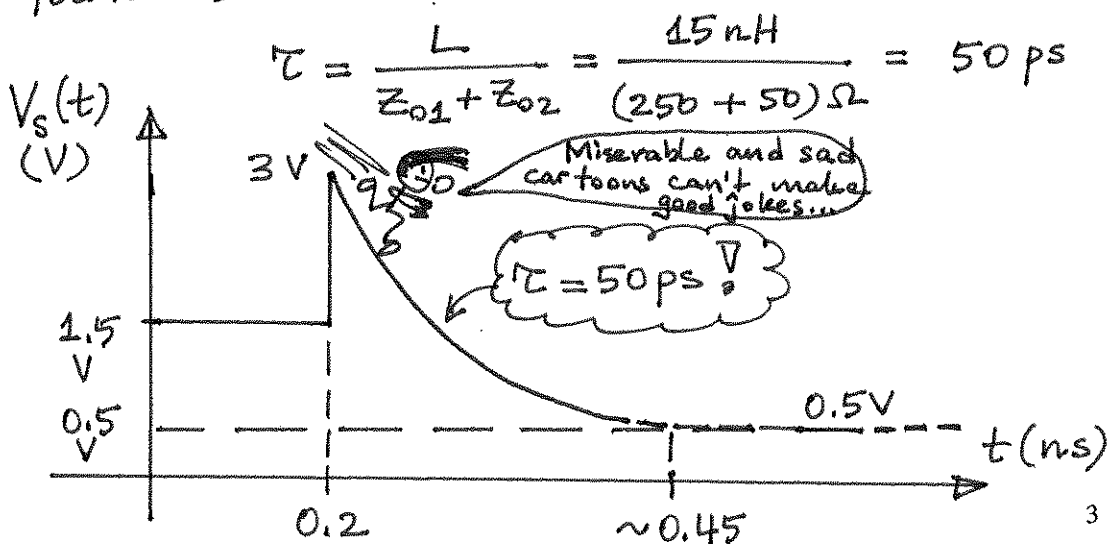 τ = L / (Z01 + Z02) = 15 nH / (250 + 50) Ω = 50 ps
Vs(t)
(V)
3 V
Miserable and sad
cartoons can't make
good jokes...
τ = 50 ps !
1.5
V
0.5
V
0.5V
t (ns)
0.2
~0.45
3